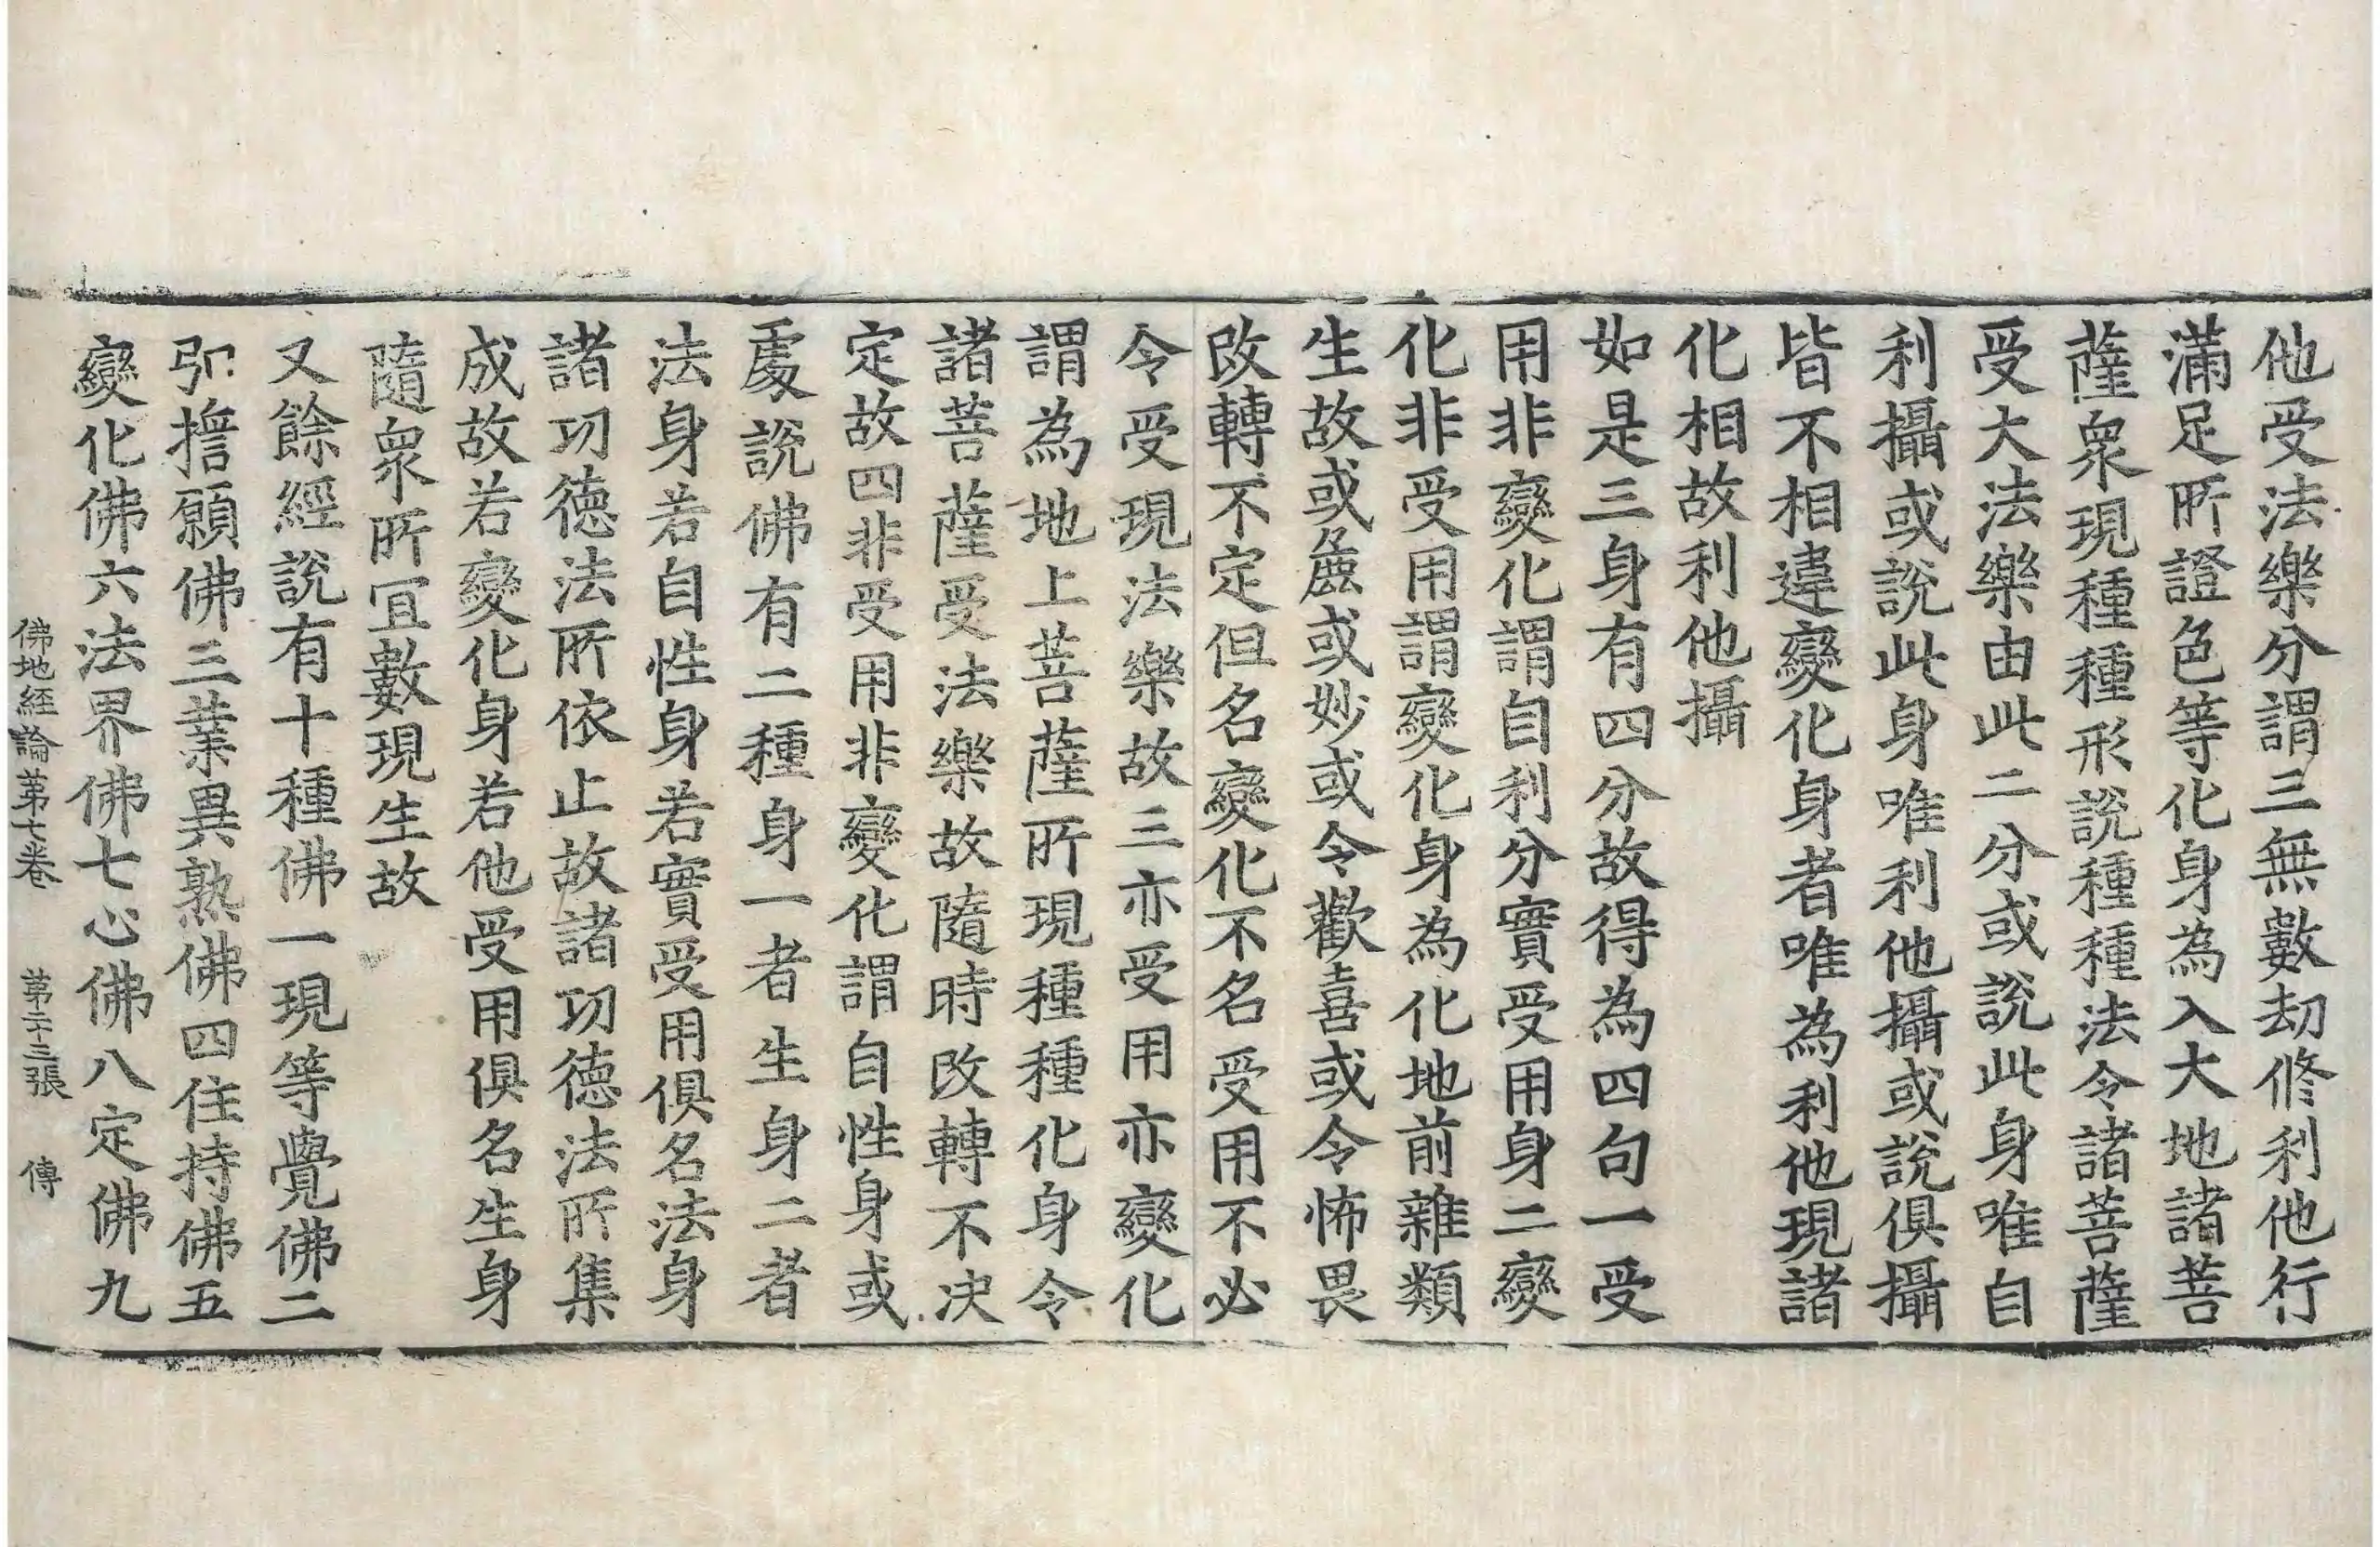 他受法樂分謂三無數劫修利他行
滿足所證色等化身為入大地諸菩
薩衆現種種形說種種法令諸菩薩
受大法樂由此二分或說此身唯自
利攝或說此身唯利他攝或說俱攝
皆不相違變化身者唯為利他現諸
化相故利他攝
如是三身有四分故得為四句一受
用非變化謂自利分實受用身二變
化非受用謂變化身為化地前雜類
生故或麁或妙或令歡喜或令怖畏
改轉不定但名變化不名受用不必
令受現法樂故三亦受用亦變化
謂為地上菩薩所現種種化身令
諸菩薩受法樂故隨時改轉不決
定故四非受用非變化謂自性身或
處說佛有二種身一者生身二者
法身若自性身若實受用俱名法身
諸功德法所依止故諸功德法所集
成故若變化身若他受用俱名生身
隨衆所宜數現生故
又餘經說有十種佛一現等覺佛二
弘擔願佛三業異熟佛四住持佛五
變化佛六法界佛七心佛八定佛九
佛地経論第七卷 第二十三張 傳